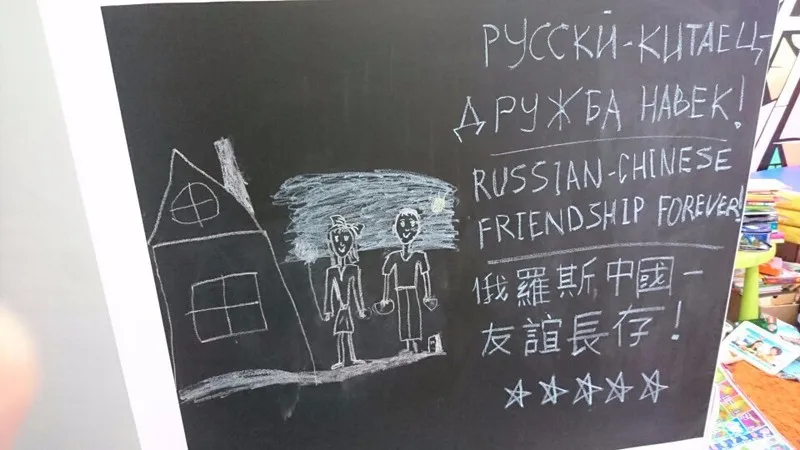 РУССКЙ-КИТАЕЦ-
ДРУЖБА НАВЕК!
RUSSIAN-CHINESE
FRIENDSHIP FOREVER!
俄羅斯,中國一
友誼長存!